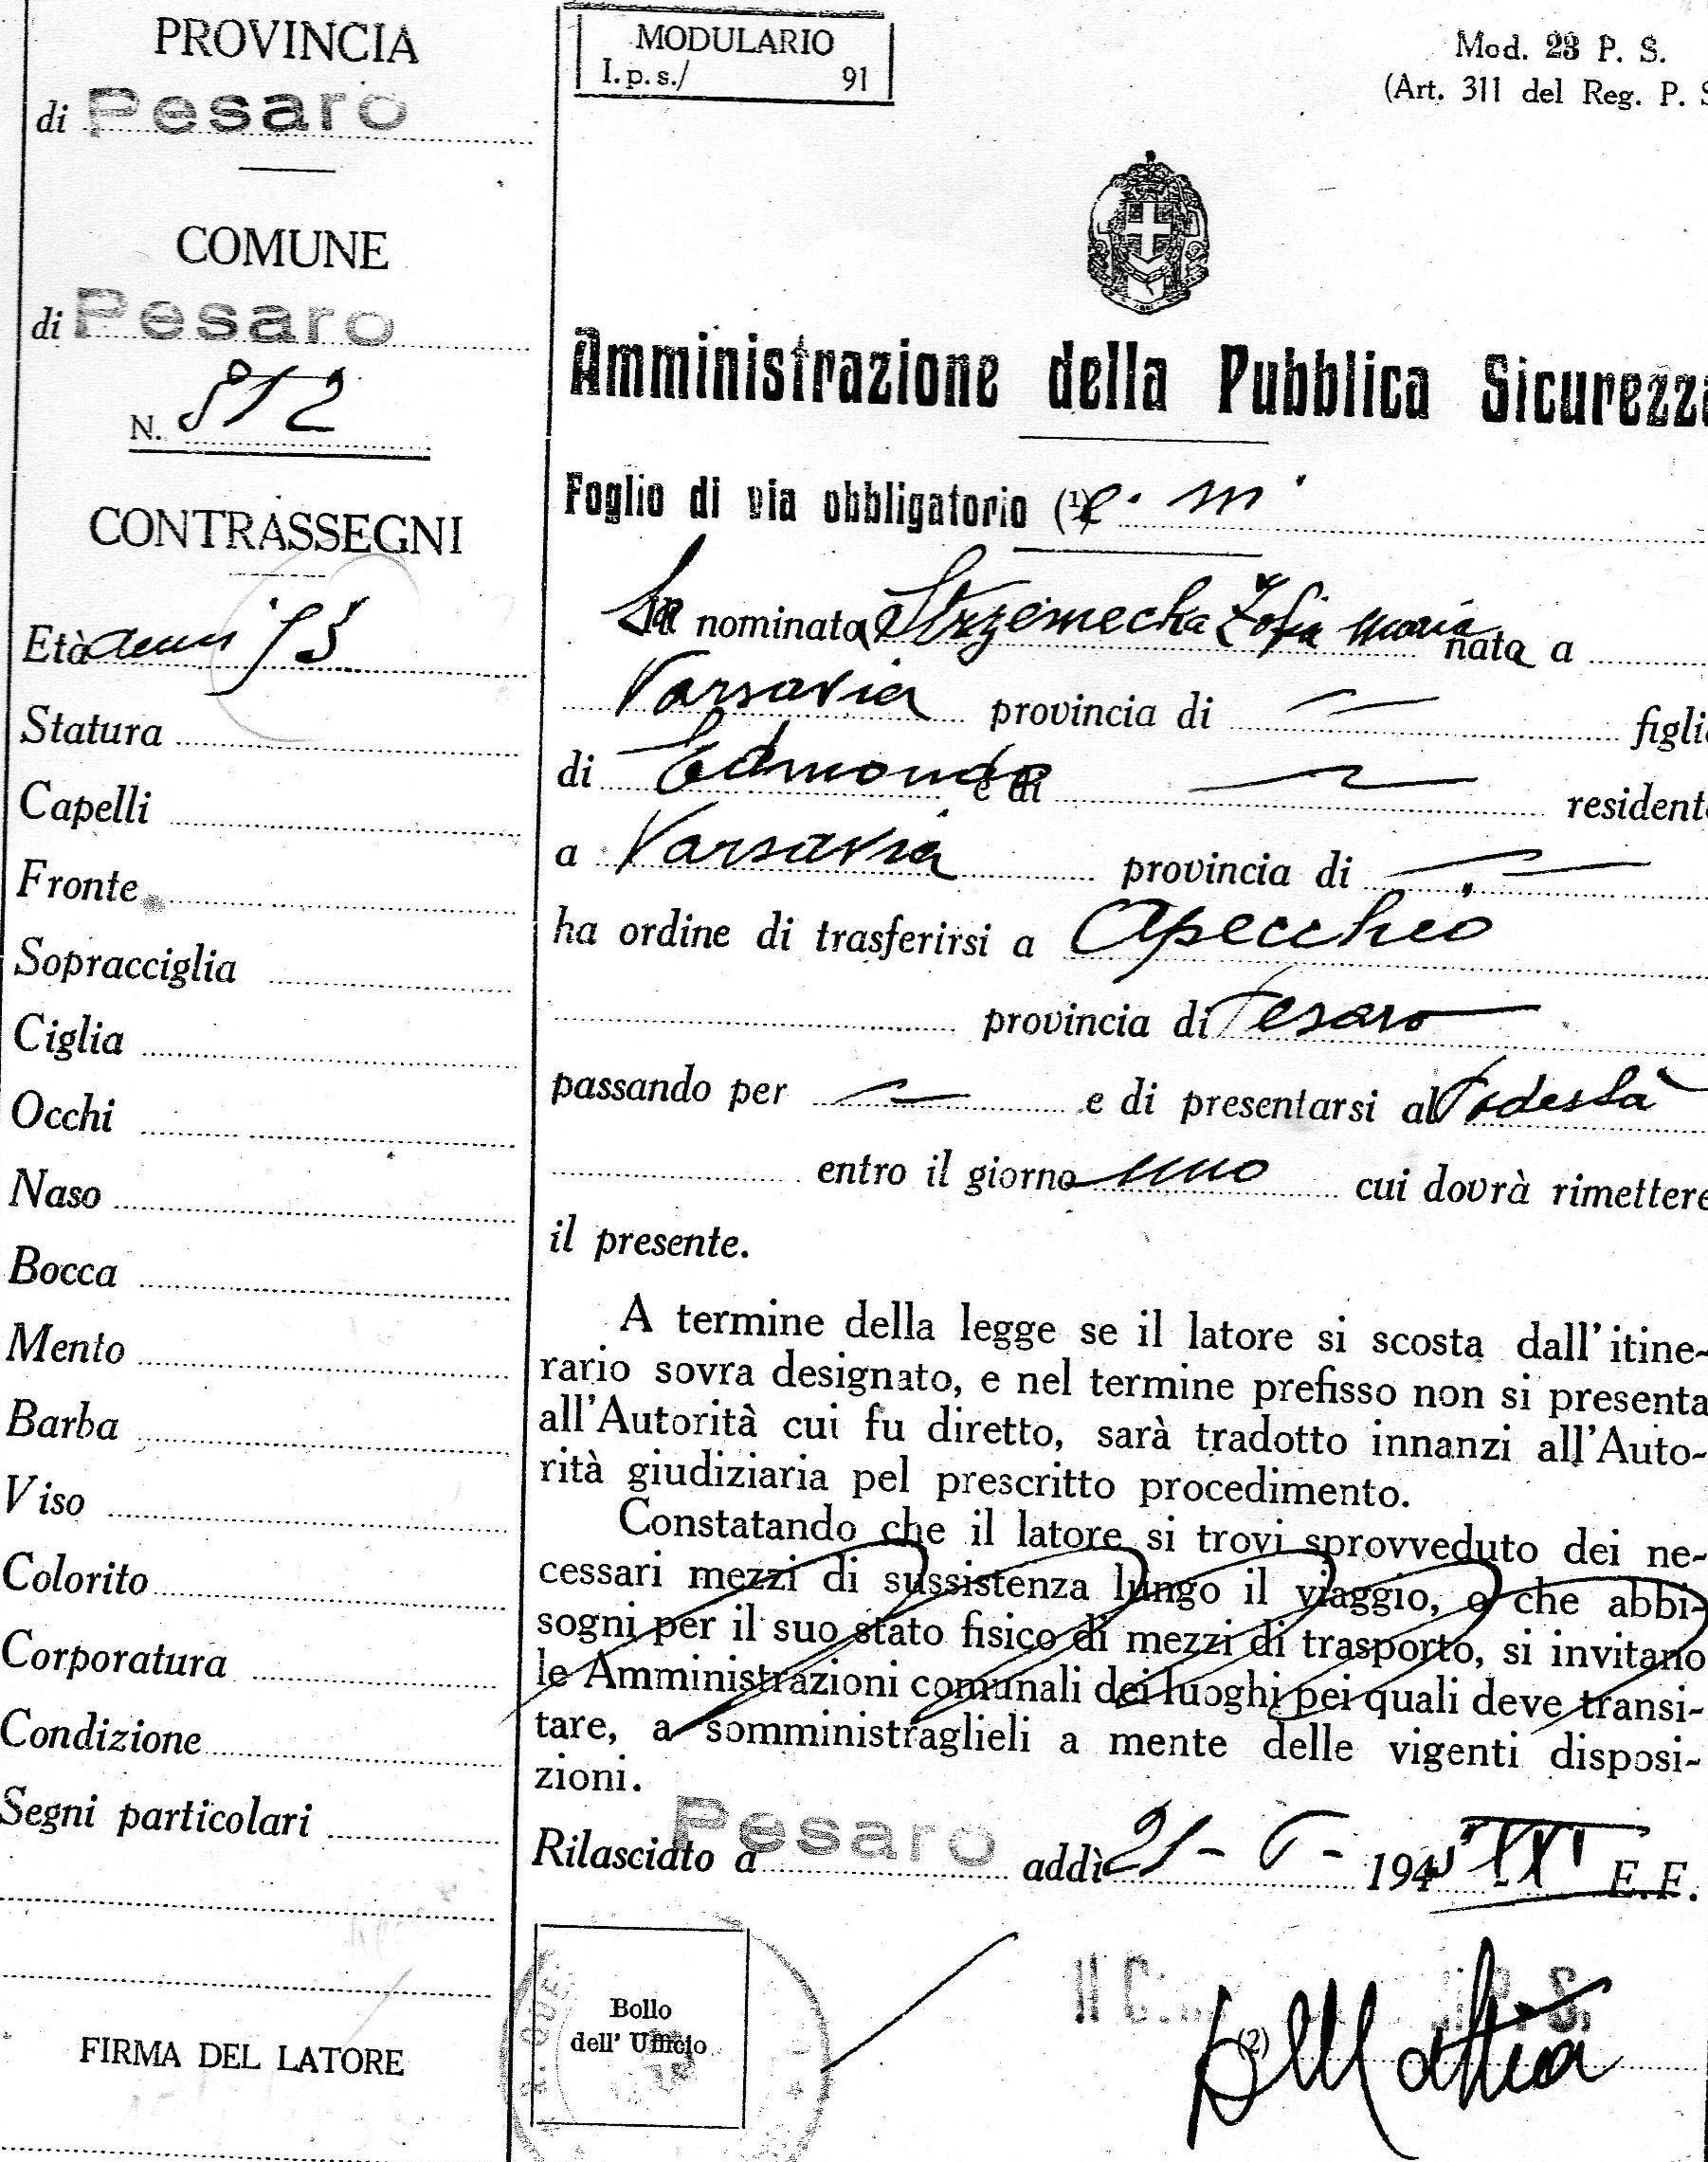 PROVINCIA
di Pesaro
COMUNE
di Pesaro
N. 812
CONTRASSEGNI
Età anni
Statura
Capelli
Fronte
Sopracciglia
Ciglia
Occhi
Naso
Bocca
Mento
Barba
Viso
Colorito
Corporatura
Condizione
Segni particolari
FIRMA DEL LATORE
MODULARIO
I. p. s./ 91
Mod. 23 P. S.
(Art. 311 del Reg. P. S
Amministrazione della Pubblica Sicurezza
Foglio di via obbligatorio (1) e. m.
La nominata Strzemecka Zofia Maria nata a
Varsavia provincia di figlia
di Edmondo e di residente
a Varsavia provincia di
ha ordine di trasferirsi a Apecchio
provincia di Pesaro
passando per e di presentarsi al Podestà
entro il giorno uno cui dovrà rimettere
il presente.
A termine della legge se il latore si scosta dall'itine-
rario sovra designato, e nel termine prefisso non si presenta
all'Autorità cui fu diretto, sarà tradotto innanzi all'Auto-
rità giudiziaria pel prescritto procedimento.
Constatando che il latore si trovi sprovveduto dei ne-
cessari mezzi di sussistenza lungo il viaggio, o che abbi-
sogni per il suo stato fisico di mezzi di trasporto, si invitano
le Amministrazioni comunali dei luoghi pei quali deve transi-
tare, a somministraglieli a mente delle vigenti disposi-
zioni.
Rilasciato a Pesaro addì 21 - 6 - 1943 XXI E.F.
Bollo
dell' Ufficio
Il C P. S.
(2)